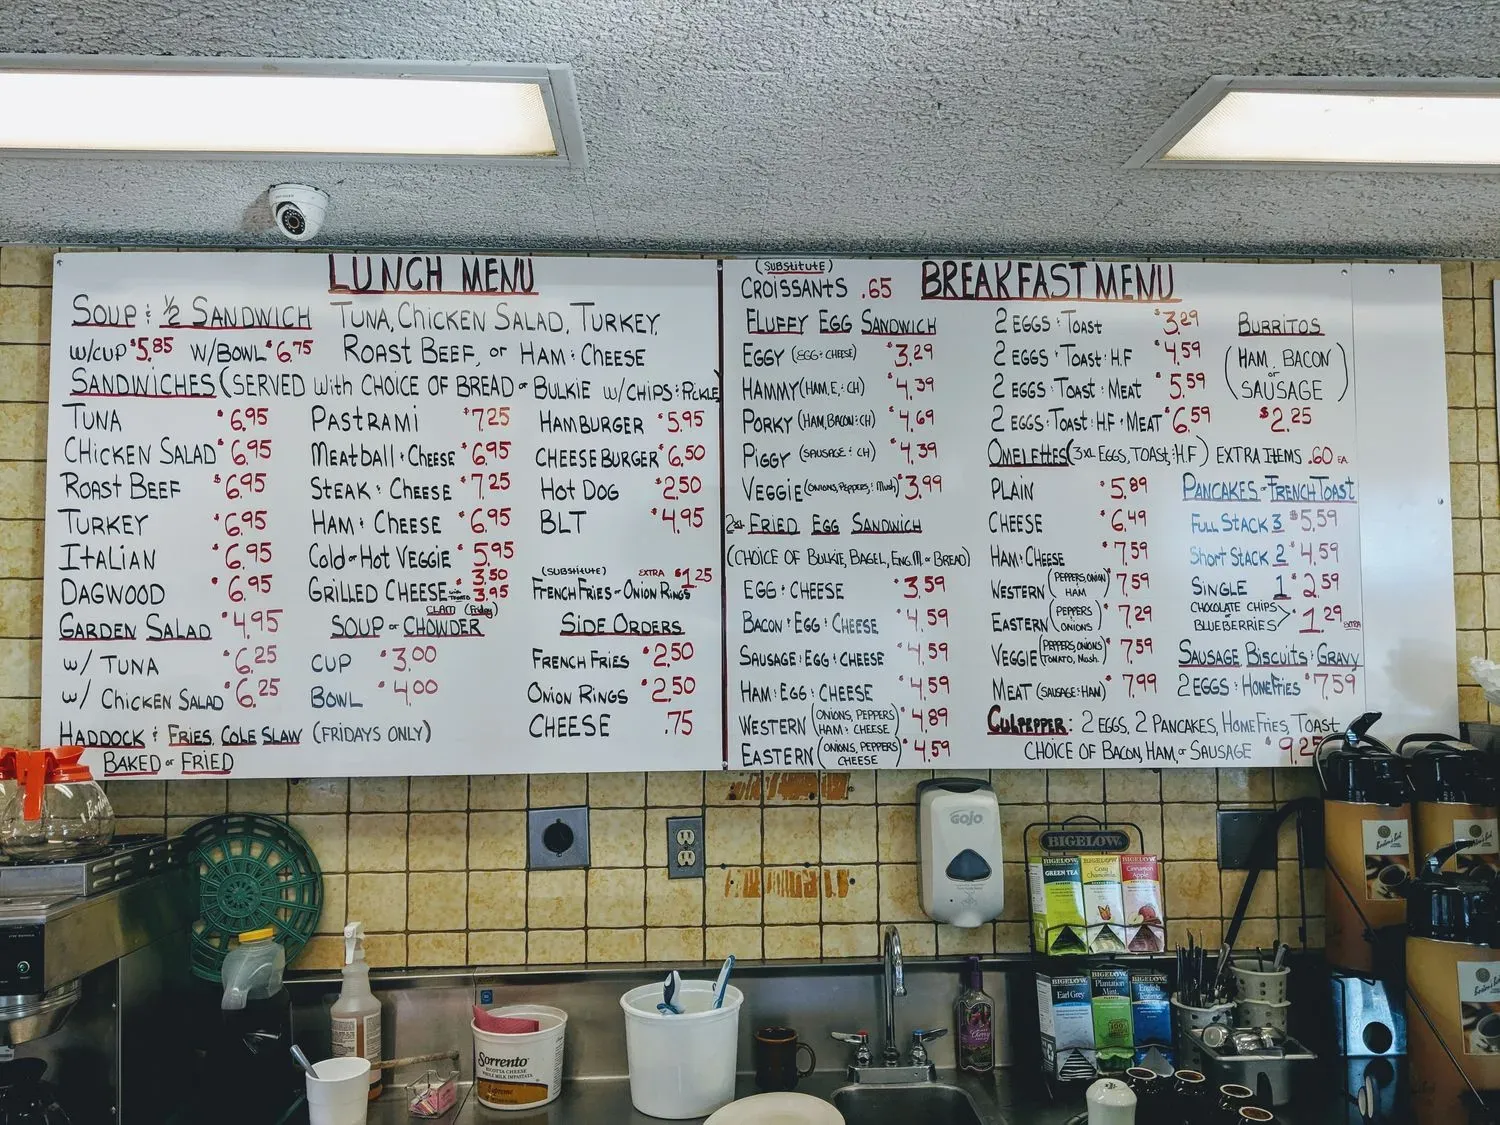 LUNCH MENU
SOUP & ½ SANDWICH TUNA, CHICKEN SALAD, TURKEY,
W/CUP $5.85 W/BOWL $6.75 ROAST BEEF, or HAM & CHEESE
SANDWICHES (SERVED with CHOICE OF BREAD or BULKIE W/CHIPS & PICKLE
TUNA $6.95
CHICKEN SALAD $6.95
ROAST BEEF $6.95
TURKEY $6.95
ITALIAN $6.95
DAGWOOD $6.95
GARDEN SALAD $4.95
W/ TUNA $6.25
W/ CHICKEN SALAD $6.25
PASTRAMI $7.25
MEATBALL & CHEESE $6.95
STEAK & CHEESE $7.25
HAM & CHEESE $6.95
COLD or HOT VEGGIE $5.95
GRILLED CHEESE $3.50
with TOMATO $3.95
CLAM (Friday)
SOUP or CHOWDER
CUP $3.00
BOWL $4.00
HAMBURGER $5.95
CHEESEBURGER $6.50
HOT DOG $2.50
BLT $4.95
(SUBSTITUTE) EXTRA $1.25
FRENCH FRIES or ONION RINGS
SIDE ORDERS
FRENCH FRIES $2.50
ONION RINGS $2.50
CHEESE .75
HADDOCK & FRIES, COLE SLAW (FRIDAYS ONLY)
BAKED or FRIED
(SUBSTITUTE)
CROISSANTS .65
BREAKFAST MENU
FLUFFY EGG SANDWICH
EGGY (EGG & CHEESE) $3.29
HAMMY (HAM, E & CH) $4.39
PORKY (HAM, BACON & CH) $4.69
PIGGY (SAUSAGE & CH) $4.39
VEGGIE (ONIONS, PEPPERS, & Mush) $3.99
FRIED EGG SANDWICH
(CHOICE OF BULKIE, BAGEL, ENG.M or BREAD)
EGG & CHEESE $3.59
BACON & EGG & CHEESE $4.59
SAUSAGE & EGG & CHEESE $4.59
HAM & EGG & CHEESE $4.59
WESTERN (ONIONS, PEPPERS HAM & CHEESE) $4.89
EASTERN (ONIONS, PEPPERS CHEESE) $4.59
2 EGGS & TOAST $3.29
2 EGGS & TOAST & H.F $4.59
2 EGGS & TOAST & MEAT $5.59
2 EGGS & TOAST & HF & MEAT $6.59
BURRITOS
(HAM, BACON or SAUSAGE)
$2.25
OMELETTES (3 XL EGGS, TOAST & H.F) EXTRA ITEMS .60 EA.
PLAIN $5.89
CHEESE $6.49
HAM & CHEESE $7.59
WESTERN (PEPPERS, ONION HAM) $7.59
EASTERN (PEPPERS ONIONS) $7.29
VEGGIE (PEPPERS, ONIONS TOMATO, Mush.) $7.59
MEAT (SAUSAGE & HAM) $7.99
PANCAKES or FRENCH TOAST
FULL STACK 3 $5.59
SHORT STACK 2 $4.59
SINGLE 1 $2.59
CHOCOLATE CHIPS or BLUEBERRIES $1.29 EXTRA
SAUSAGE, BISCUITS & GRAVY
2 EGGS & HOMEFRIES $7.59
CULPEPPER: 2 EGGS, 2 PANCAKES, HOMEFRIES, TOAST
CHOICE OF BACON, HAM, or SAUSAGE $9.25
GOJO
BIGELOW
GREEN TEA
Cozy Chamomile
Cinnamon Apple
BIGELOW BIGELOW BIGELOW
Earl Grey
Plantation Mint
English Teatime
Sorrento
RICOTTA CHEESE
WHOLE MILK IMPASTATA
Supreme